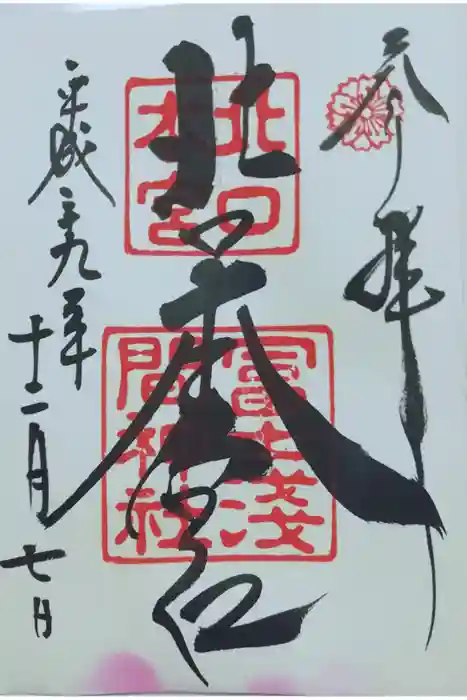 奉拝
北口本宮
北口本宮
冨士浅間神社
平成二十九年
十二月七日